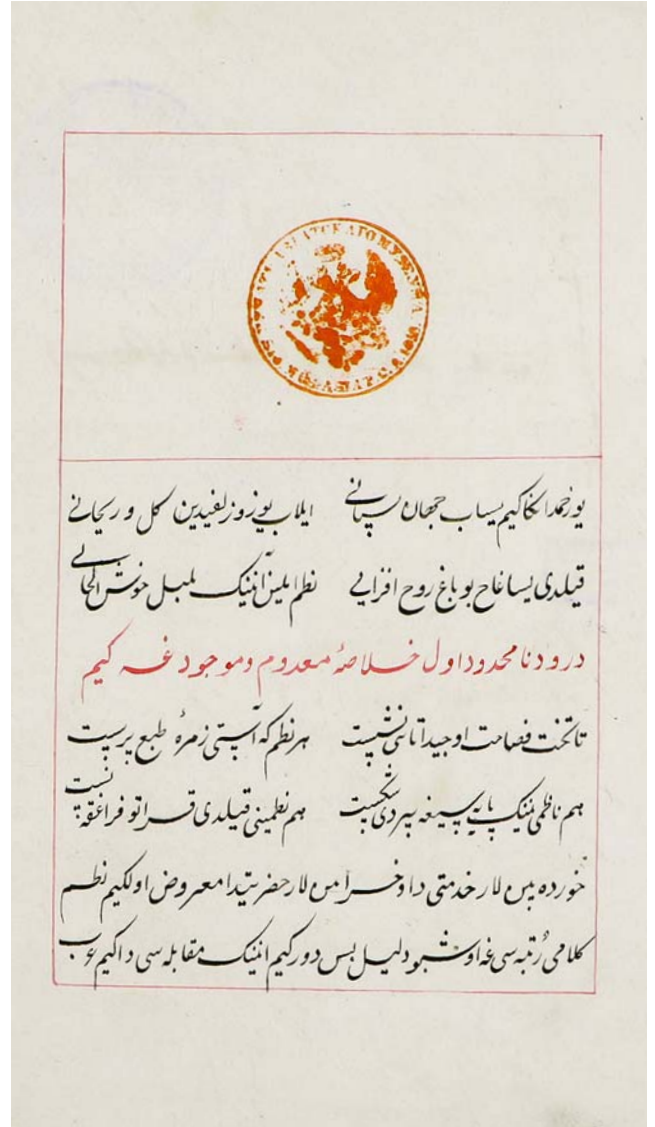 یوز حمد انکا کیم یساب جهان بستانی ایلاب یوز و زلفیدین کل و ریحانی
قیلدی یساغاج بو باغ روح افزانی نظم ایلین آنینک بلبل خوش الحانی
درود نامحدود اول خلاصهٔ معدوم و موجودغه کیم
تا تخت فصاحت اوجیدا تابتی نشست هر نظم که آیتی زمرهٔ طبع پرست
هم ناظمی ننک پایه سیغه بیردی شکست هم نظمینی قیلدی قرا توفراغقه پست
خورده بین لار خدمتی دا و خرامین لار حضرتیدا معروض اولکیم نظم
کلامی رتبه سی غه اوشبو دلیل بس دور کیم انینک مقابله سی دا کیم